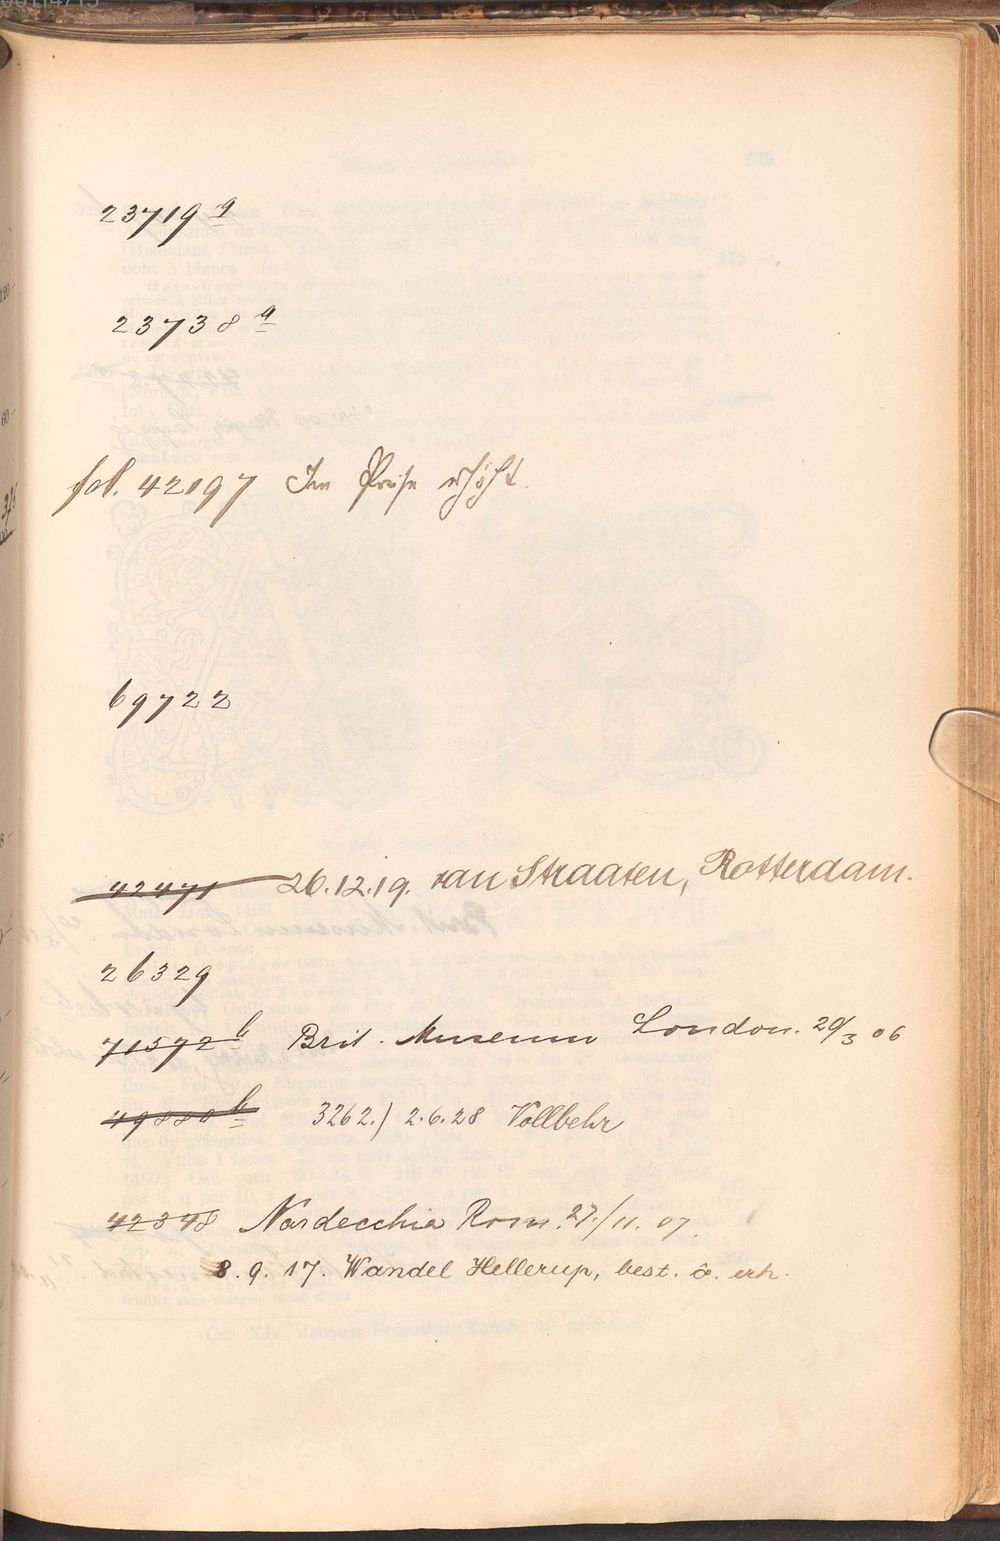 23719 a
23738 a
fol. 42197 Im Preise erhöht.
69722
42471 26.12.19. van Straaten, Rotterdam.
26329
71572 b Brit. Museum London. 29/3 06
49880 b 3262.) 2.6.28 Vollbehr
42348 Nardecchia Rom. 27./11. 07.
8. 9. 17. Wandel Hellerup, best. erh.